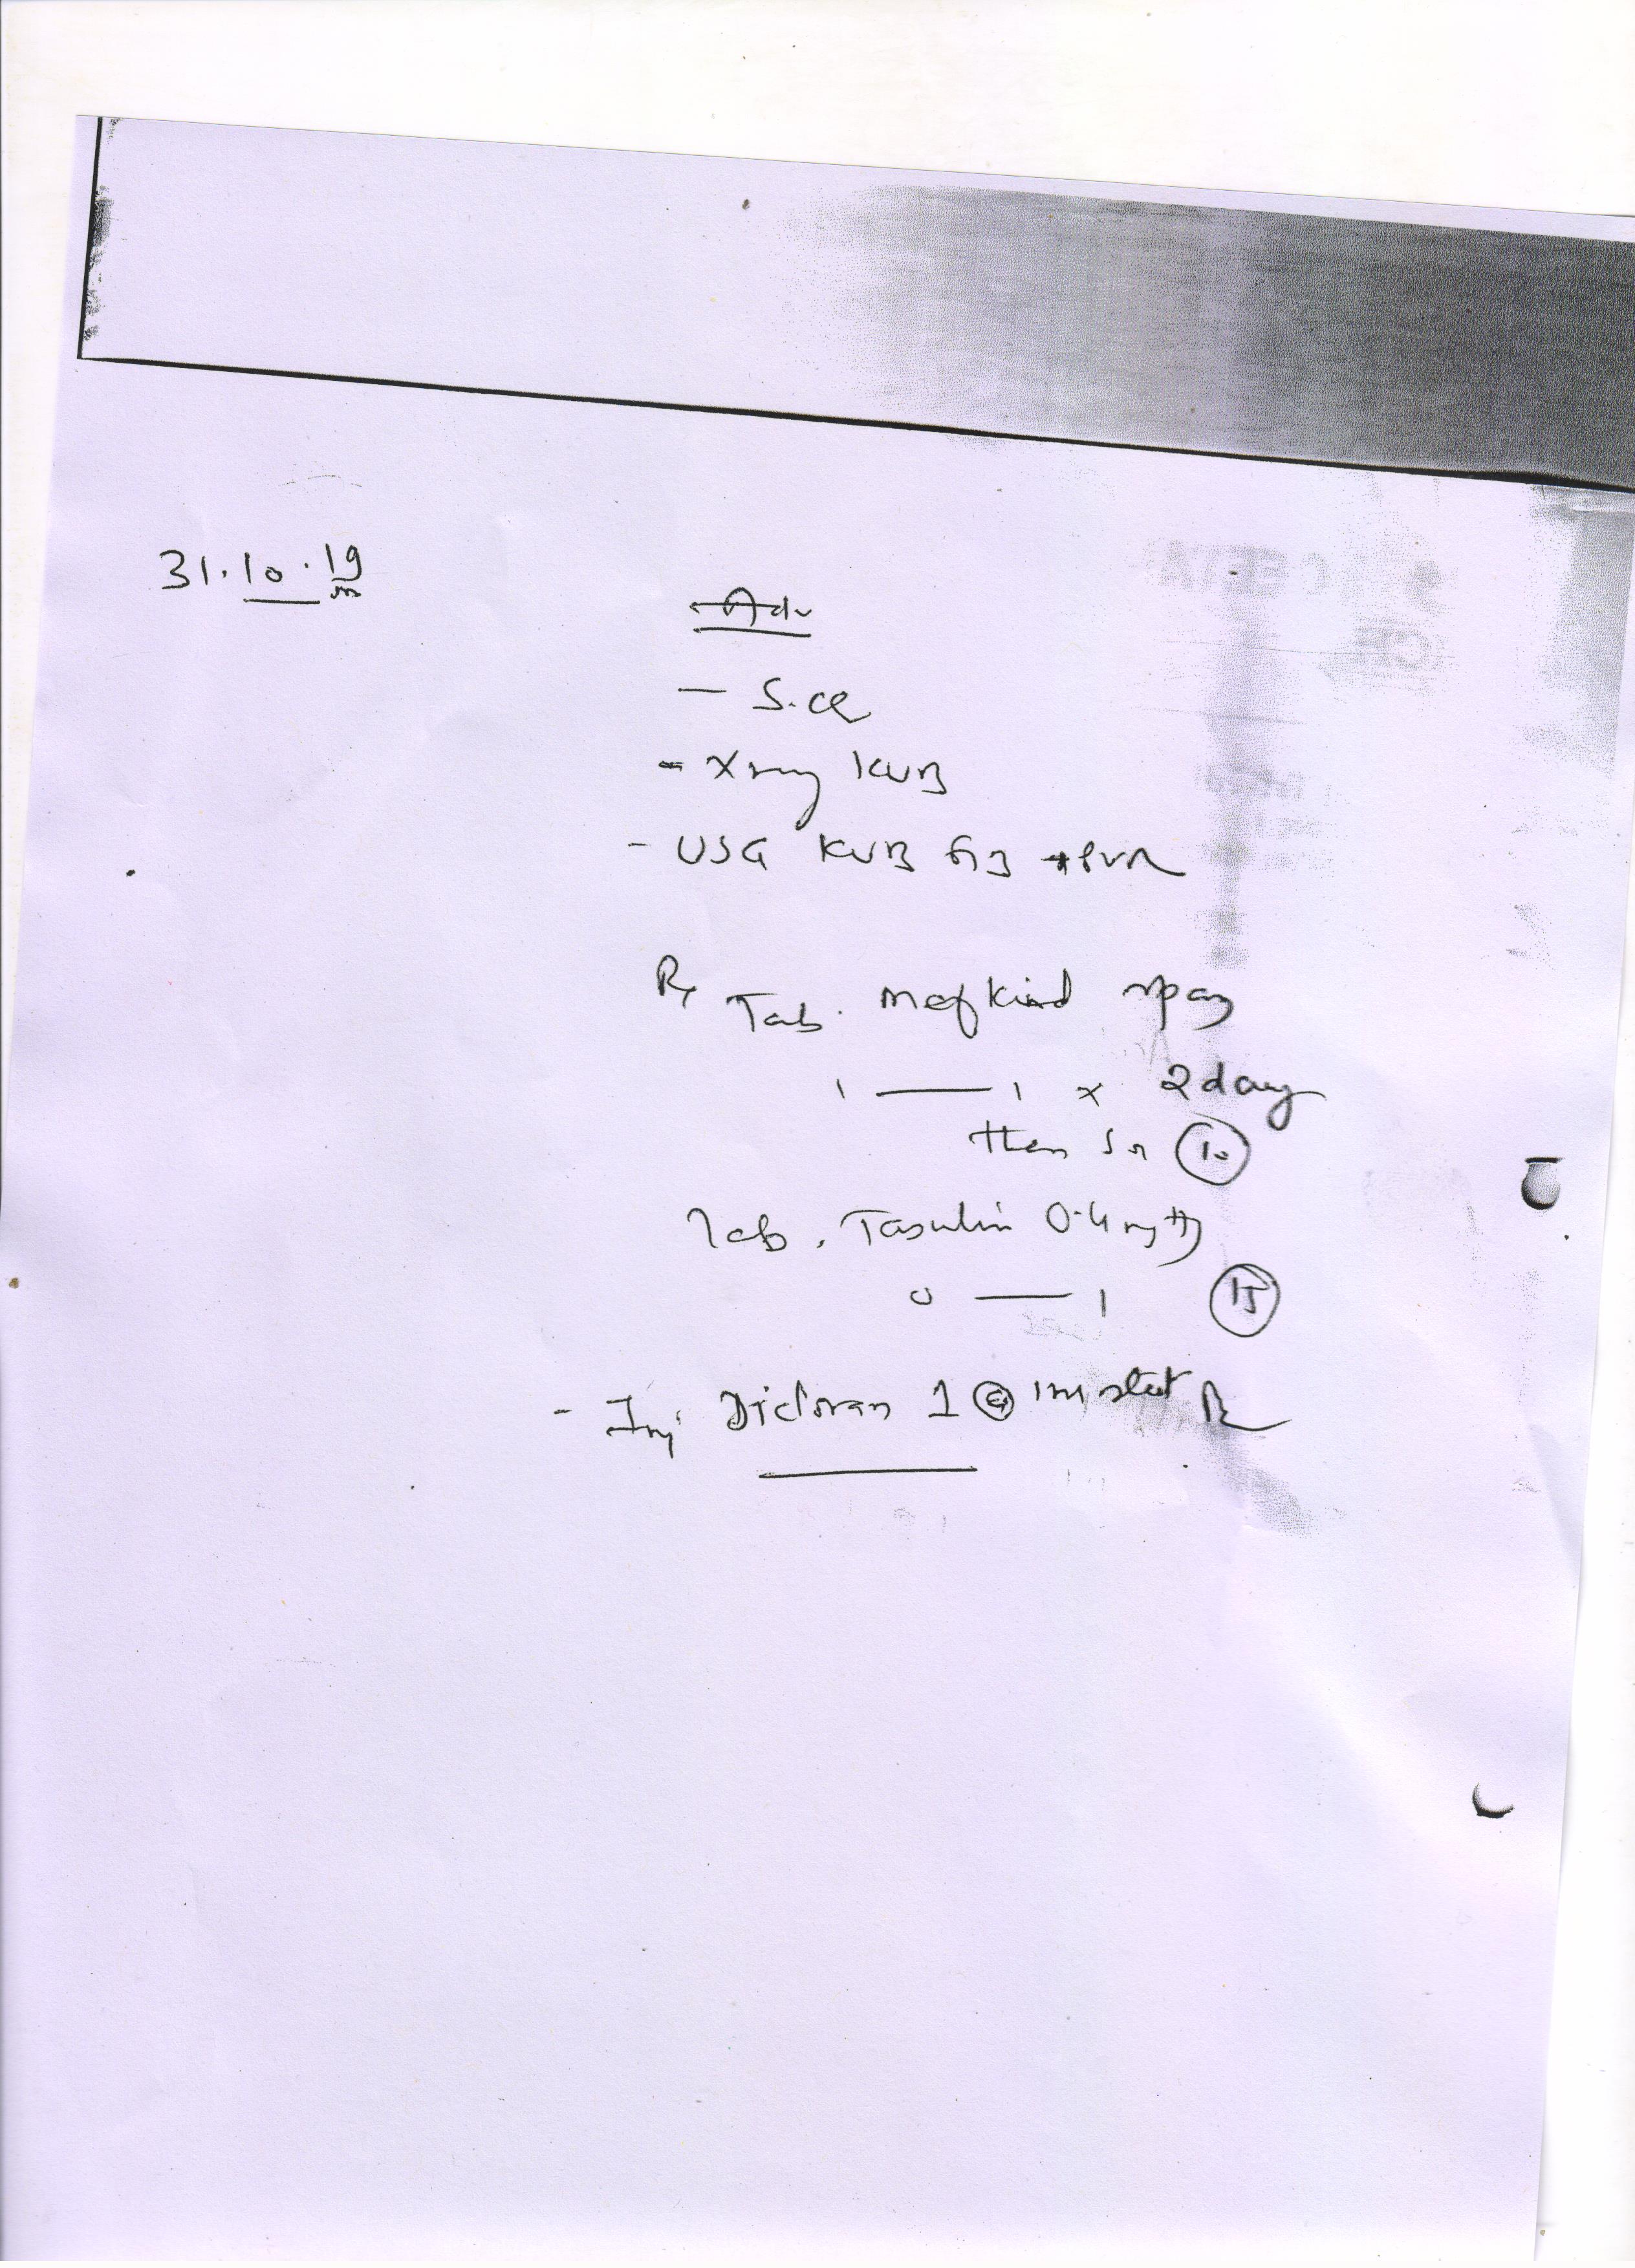 31.10.19
Adv
- S. CR
- Xray KUB
- USG KUB + PVR
Rx Tab. Mefkind spas
1 — 1 x 2 day
then SOS 10
Tab. Tasulin 0.4 mg
0 — 1 15
- Inj Dicloran 1 IM stat